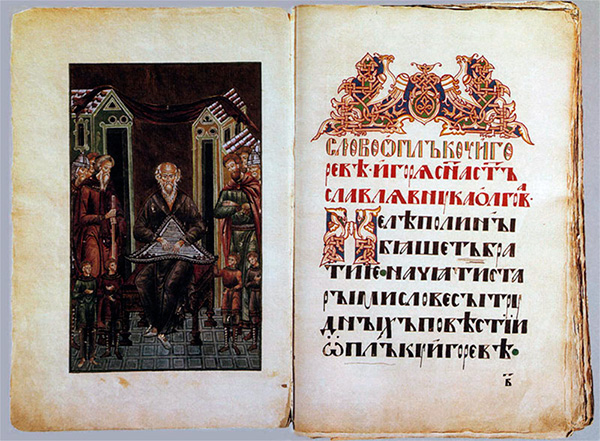 СЛОВОѠПЛЪКОУИГО
РЕВѢ·ИГОРЯСН҃АСТ҃Ъ
СЛАВЛЯВНꙊКАОЛГОВА·
НЕЛѢПОЛИНЫ
БЯШЕТЬБРА
ТИЕ·НАЧЯТИСТА
РЫМИСЛОВЕСЫТРꙊ
ДНЫХЪПОВѢСТИИ
ѠПЛЪКꙊИГОРЕВѢ·
В҃